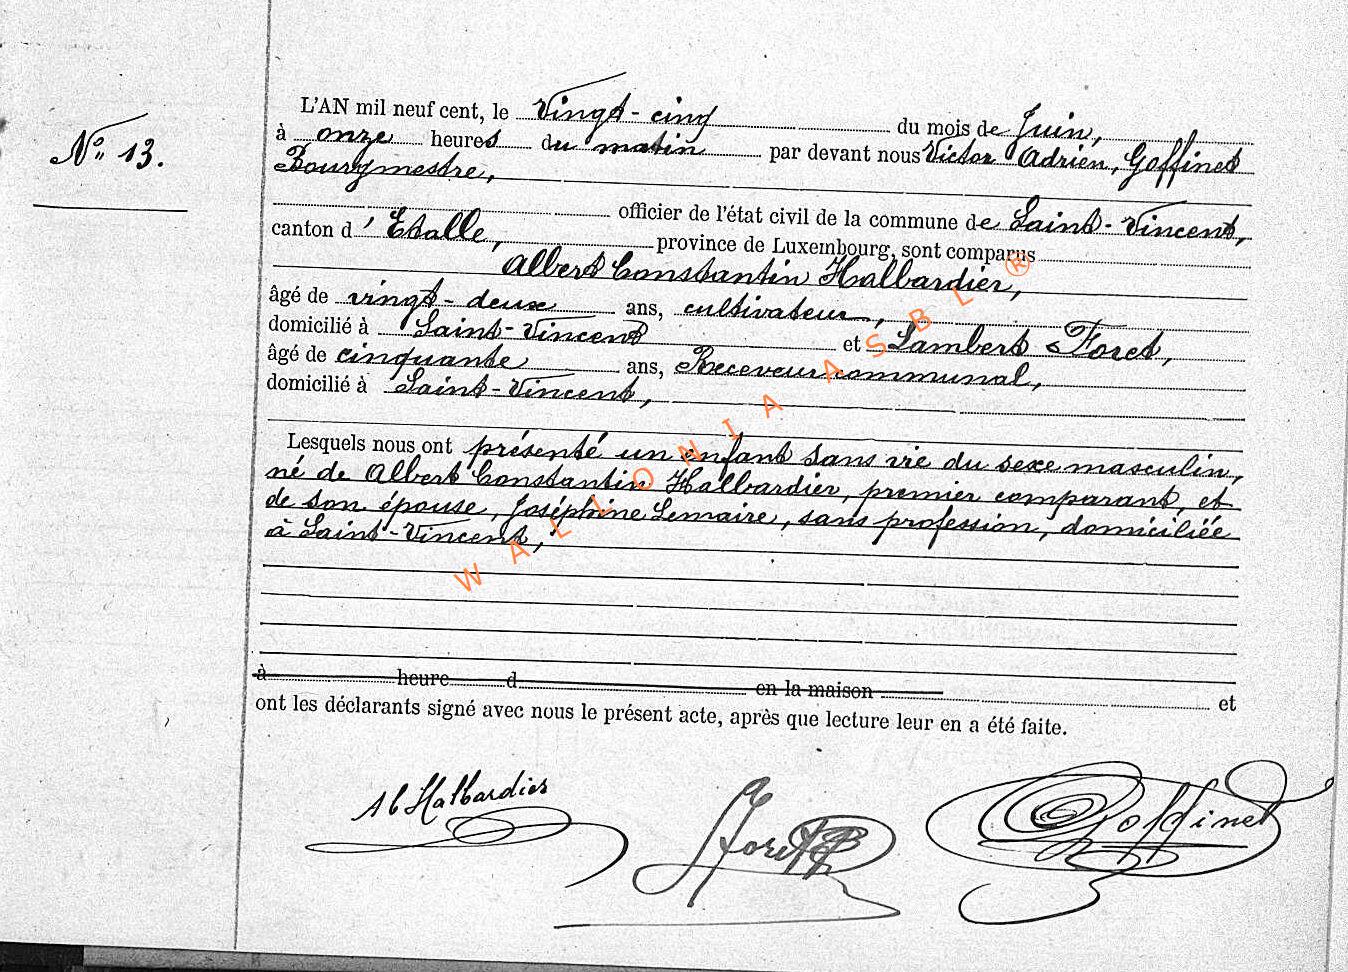 N° 13.
L'AN mil neuf cent, le Vingt-cinq du mois de Juin,
à onze heures du matin par devant nous Victor Adrien, Goffinet
Bourgmestre,
officier de l'état civil de la commune de Saint-Vincent,
canton d'Etalle, province de Luxembourg, sont comparus
Albert Constantin Halbardier,
âgé de vingt-deux ans, cultivateur,
domicilié à Saint-Vincent et Lambert Foret,
âgé de cinquante ans, Receveur communal,
domicilié à Saint-Vincent,
Lesquels nous ont présenté un enfant sans vie du sexe masculin,
né de Albert Constantin Halbardier, premier comparant, et
de son épouse, Joséphine Lemaire, sans profession, domiciliée
à Saint-Vincent,
à heure d en la maison et
ont les déclarants signé avec nous le présent acte, après que lecture leur en a été faite.
Alb Halbardier
Foret
Goffinet
WALLONIA ASBL ®